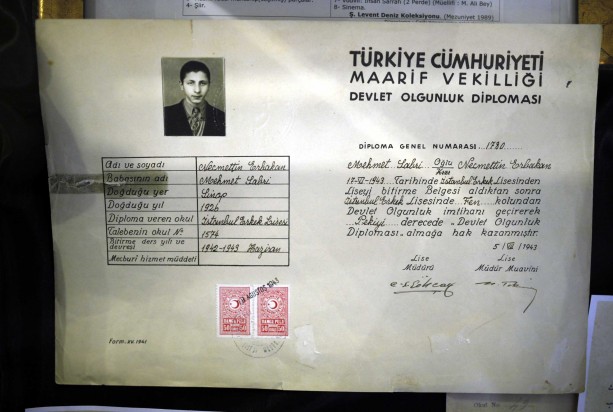 4- Şar.
İhsan Sarrah (2 Perde) (Müellif : M. Ali Bey)
8- Sinema.
Ş. Levent Deniz Koleksiyonu. (Mezuniyet 1989)
TÜRKİYE CÜMHURİYETİ
MAARİF VEKİLLİĞİ
DEVLET OLGUNLUK DİPLOMASI
DİPLOMA GENEL NUMARASI: 1730
Adı ve soyadı Necmettin Erbakan
Babasının adı Mehmet Sabri
Doğduğu yer Sinop
Doğduğu yıl 1926
Diploma veren okul İstanbul Erkek Lisesi
Talebenin okul No 1574
Bitirme ders yılı ve devresi 1942-1943 Haziran
Mecburî hizmet müddeti
Mehmet Sabri Oğlu Necmettin Erbakan
Kızı
17-VI-1943 Tarihinde İstanbul Erkek Lisesinden
Liseyi bitirme Belgesi aldıktan sonra
İstanbul Erkek Lisesinde Fen kolundan
Devlet Olgunluk imtihanı geçirerek
Pekiyi derecede «Devlet Olgunluk
Diploması» almağa hak kazanmıştır.
5/VII/1943
Lise Müdürü
Lise Müdür Muavini
AĞUSTOS 1943
DAMGA PULU
DAMGA PULU
Form. 1941